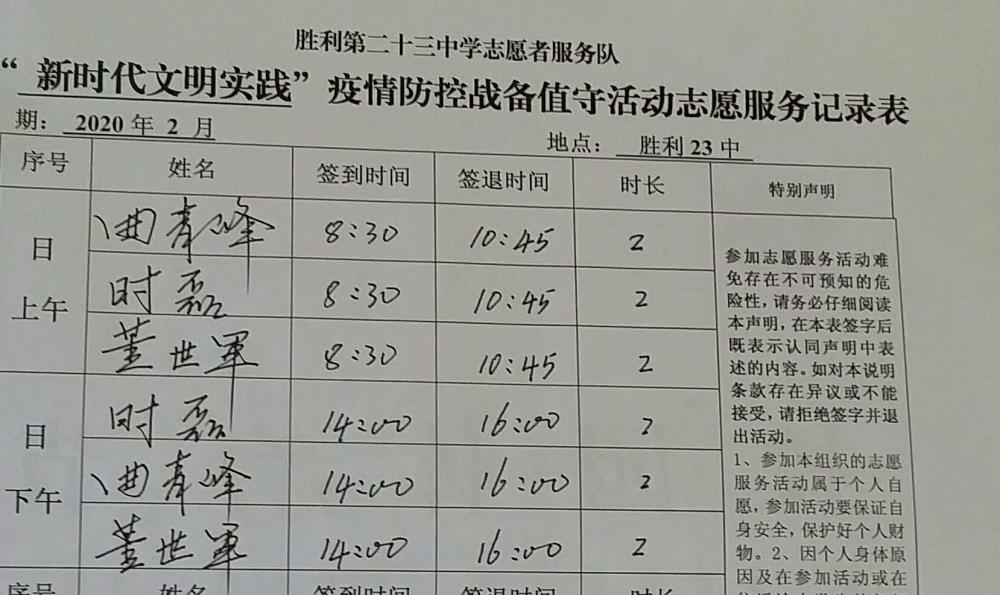 胜利第二十三中学志愿者服务队
“新时代文明实践”疫情防控战备值守活动志愿服务记录表
期： 2020 年 2 月 地点： 胜利 23 中
序号 姓名 签到时间 签退时间 时长 特别声明
日
上午
曲青峰 8:30 10:45 2
时磊 8:30 10:45 2
董世军 8:30 10:45 2
日
下午
时磊 14:00 16:00 2
曲青峰 14:00 16:00 2
董世军 14:00 16:00 2
参加志愿服务活动难
免存在不可预知的危
险性，请务必仔细阅读
本声明，在本表签字后
既表示认同声明中表
述的内容。如对本说明
条款存在异议或不能
接受，请拒绝签字并退
出活动。
1、参加本组织的志愿
服务活动属于个人自
愿，参加活动要保证自
身安全，保护好个人财
物。2、因个人身体原
因及在参加活动或在
序号 姓名 签到时间 签退时间 时长